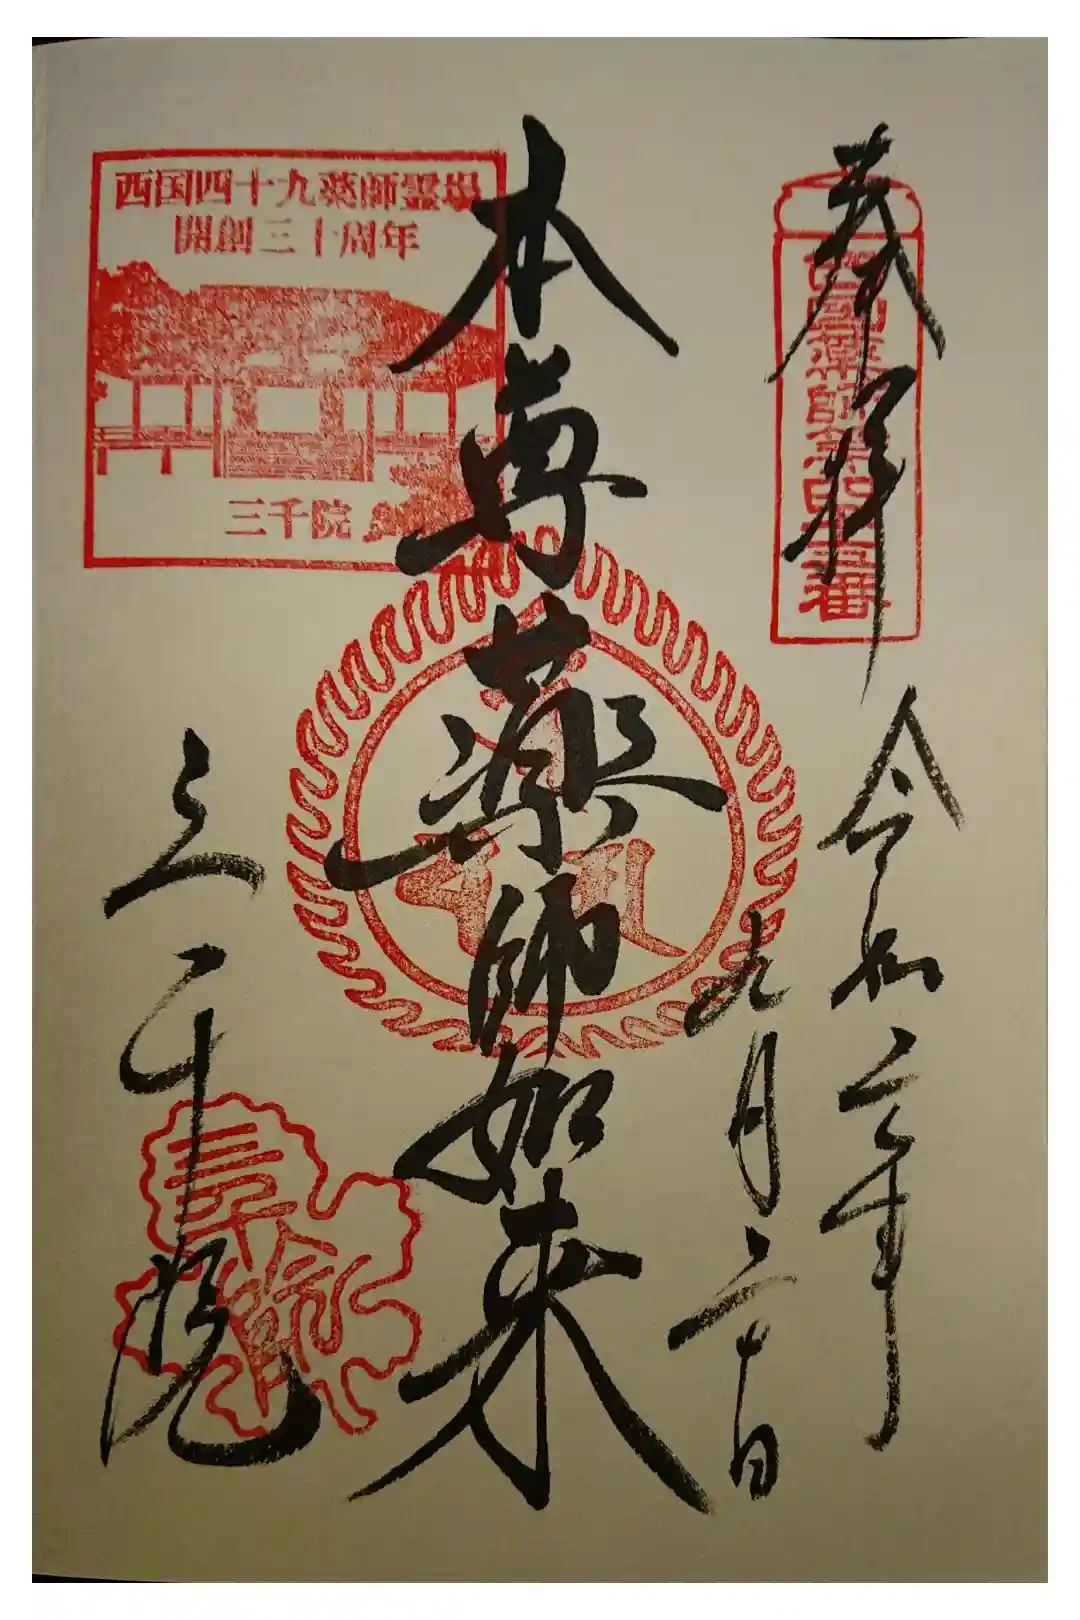 奉拝
西國薬師第四十五番
令和二年
九月二十日
本尊薬師如来
西国四十九薬師霊場
開創三十周年
三千院
三千院